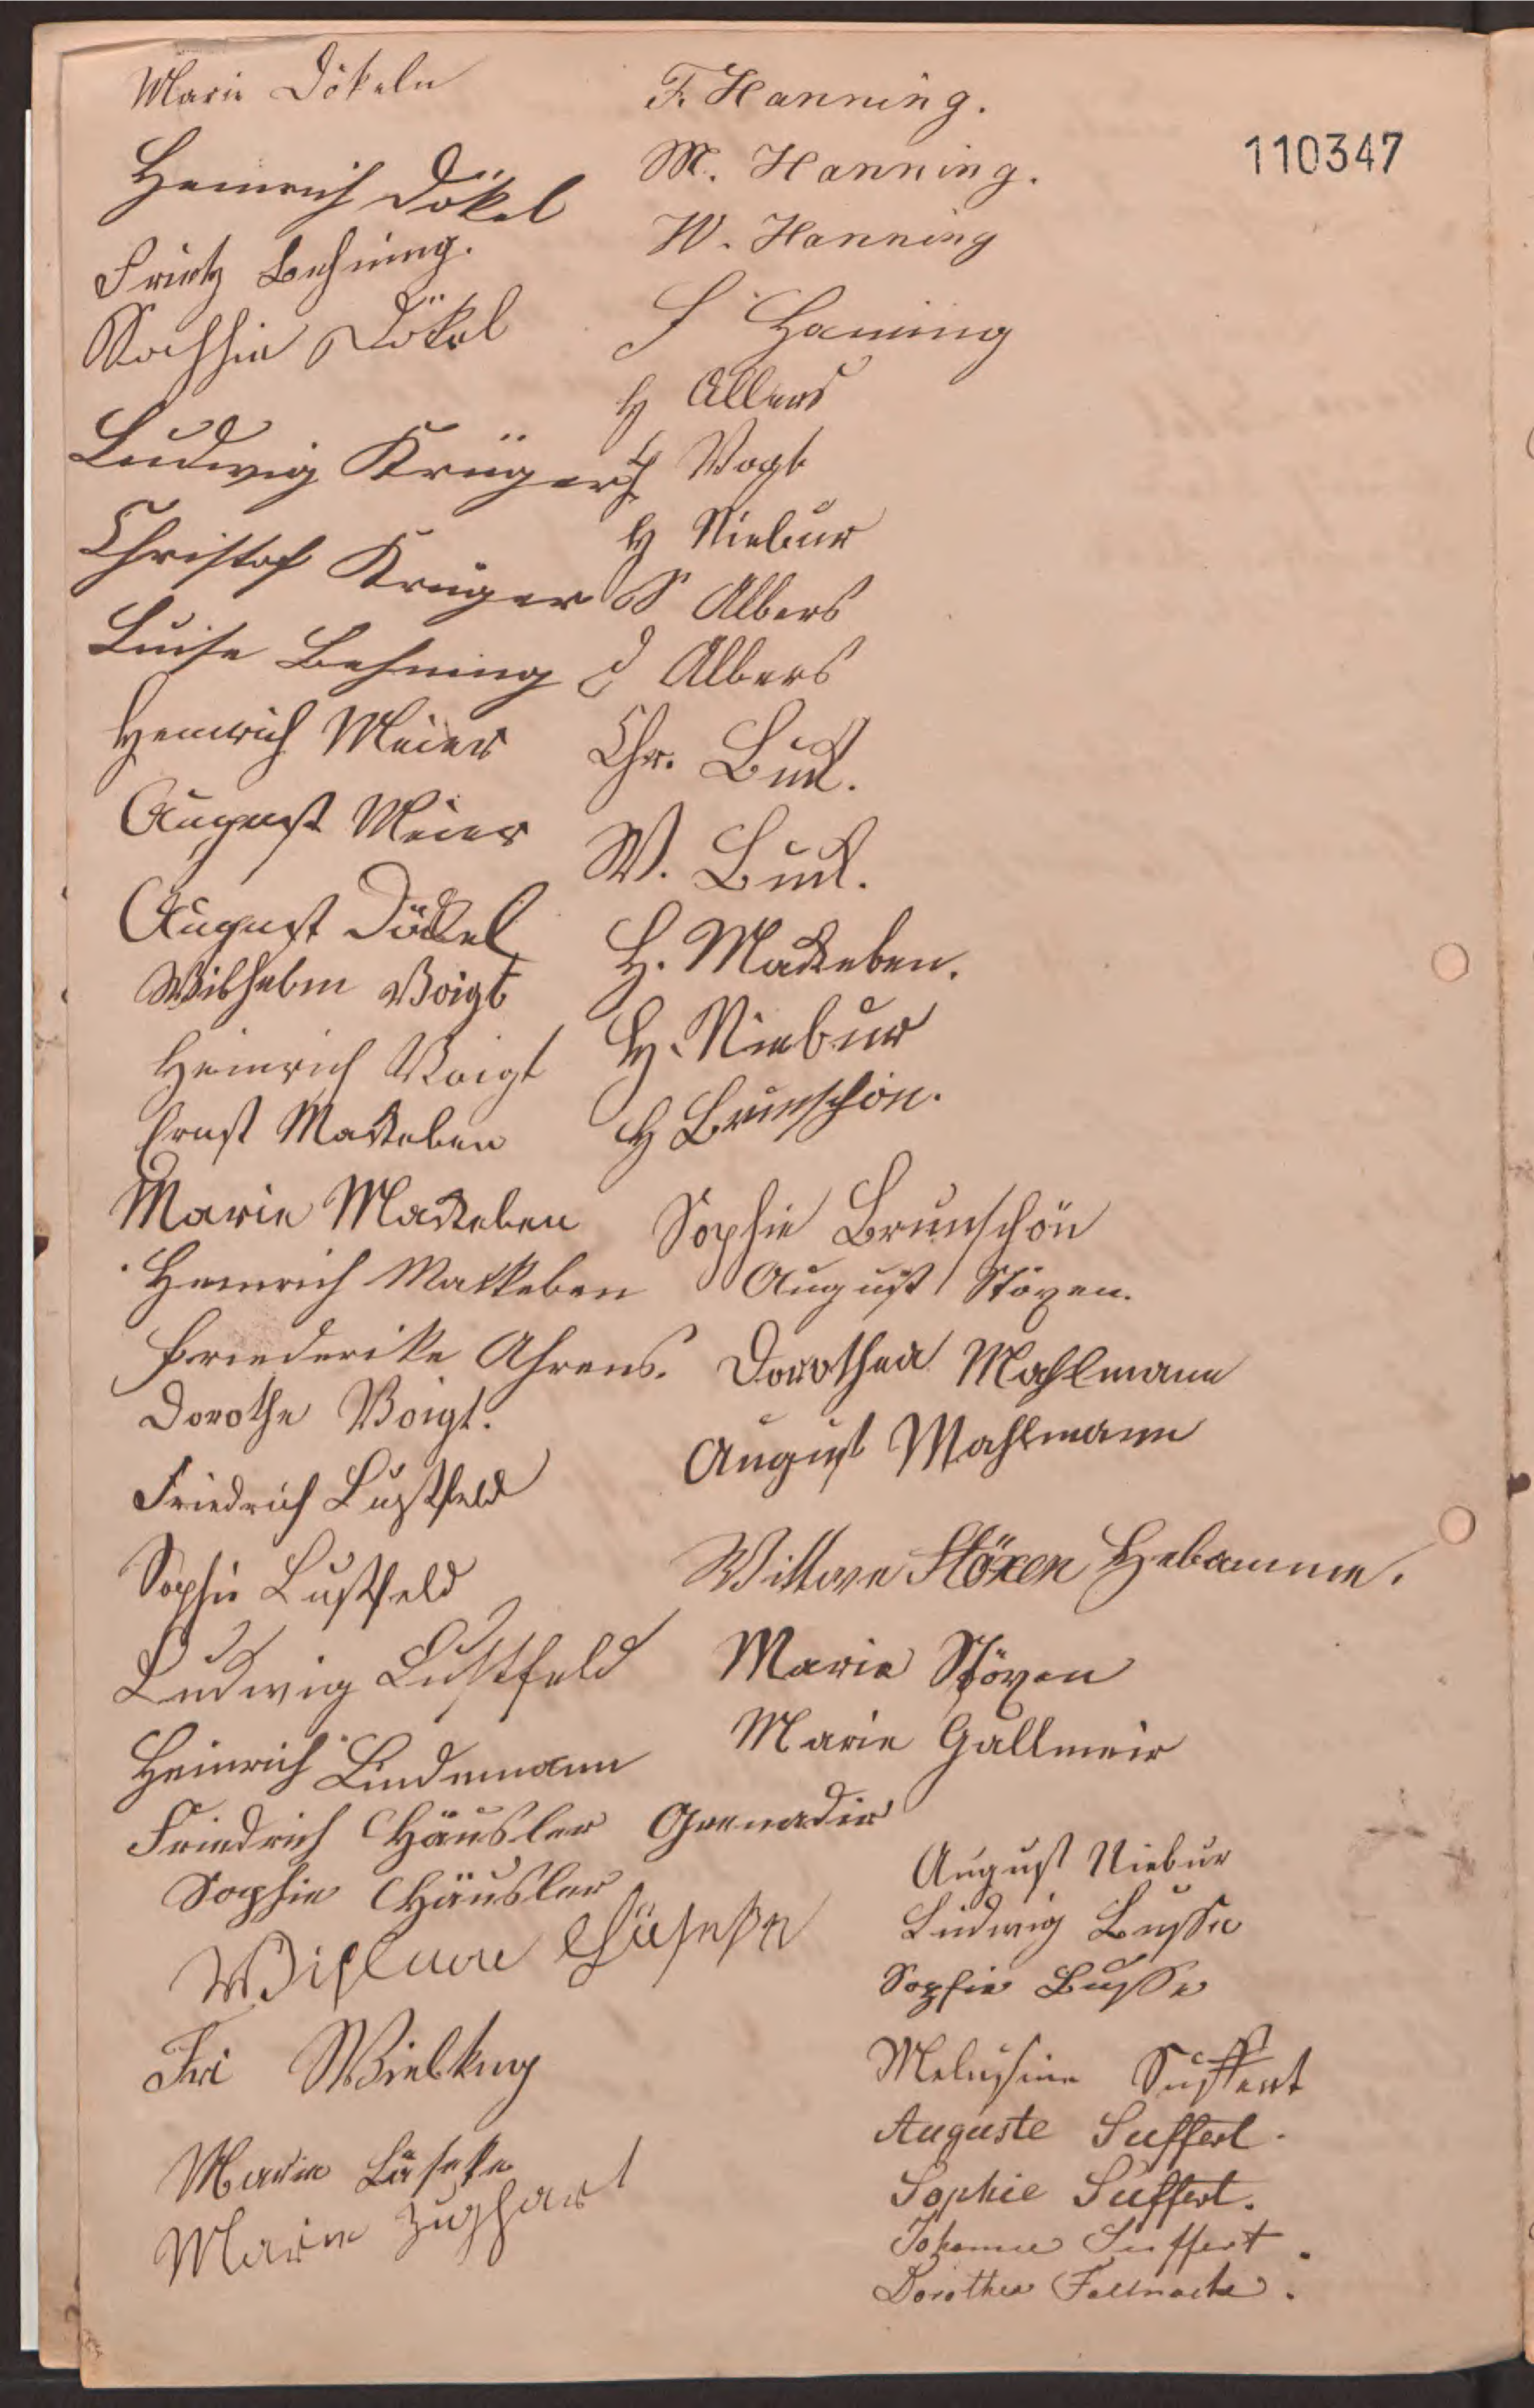 Marie Dökeln
Heinrich Dökel
Frietz Behning.
Dökel
Ludwig Krüger
Christof Krüger
Luise Behning
Heinrich Meier
August Meier
August Döckel
Wilhelm Voigt
Heinrich Voigt
Ernst Mackeben
Marie Mackeben
Heinrich Mackeben
Friederike Ahrens.
Dorothe Voigt.
Friedrich Lustfeld
Sophie Lustfeld
Ludwig Lustfeld
Heinrich Lindemann
Friedrich Häusler Grenadir
Sophie Häusler
Fri Wielking
Marie Läseke
Marie
F. Hanning.
M. Hanning.
W. Hanning
F Hanning
H Allers
Vogt
H Niebur
S Albers
D Albers
Chr.
W.
H. Mackeben.
H. Niebur
H Brunschön.
Sophie Brunschön
August Stöxen.
Dorothea Mahlmann
August Mahlmann
Wittwe Stöxen Hebamme.
Marie Stöxen
Marie Gallmeir
August Niebur
Ludwig Busse
Sophie Busse
Melusine Suffert
Auguste Suffert.
Sophie Suffert.
Johanne Suffert.
Dorothea
110347